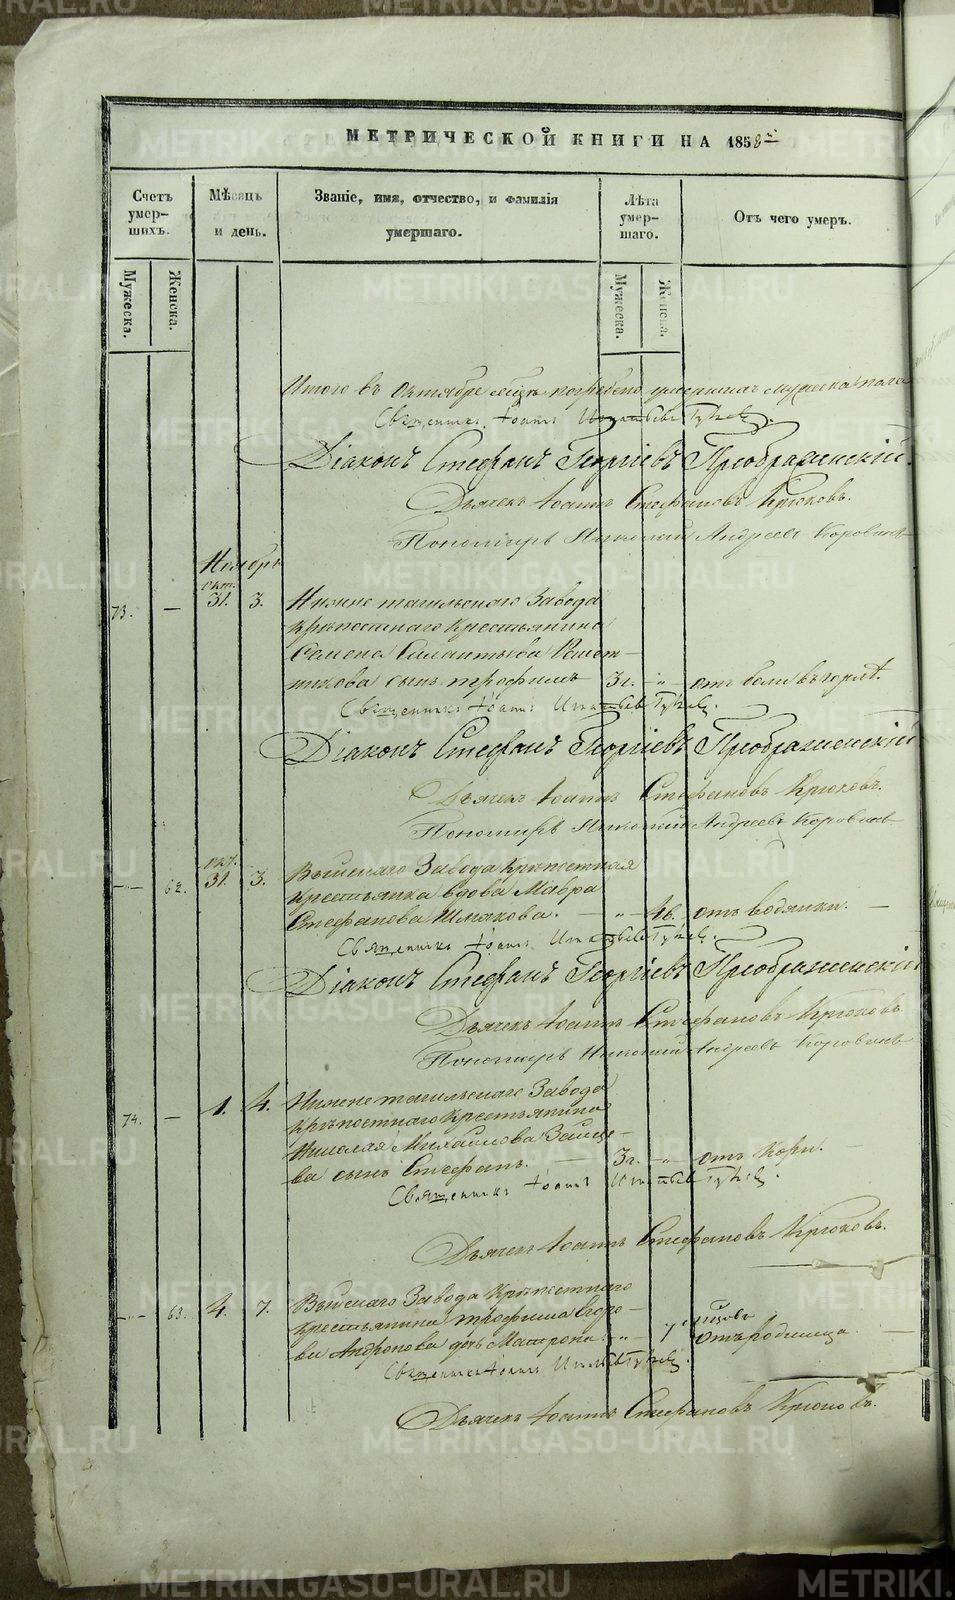 METRIKI.GASO-URAL.RU
МЕТРИЧЕСКОЙ КНИГИ НА 1858
Счетъ умер-шихъ.
Мѣсяцъ и день.
Званіе, имя, отчество, и фамилія умершаго.
Лѣта умер-шаго.
Отъ чего умеръ.
Мужеска.
Женска.
Мужеска.
Женска.
Итого въ октябрѣ погребено умершихъ мужеска пола
Священникъ Іоаннъ
Діаконъ Стефанъ Георгіевъ Преображенскій.
Дьячекъ Іоаннъ Стефановъ Крюковъ.
Пономарь Николай Андреевъ Коровинъ
Ноябрь
окт.
73. — 31. 3. Нижнетагильскаго Завода
крѣпостнаго крестьянина
Семена Силантьева Решет-
никова сынъ Трофимъ 3 г. „ отъ боли въ горлѣ.
Священникъ Іоаннъ
Діаконъ Стефанъ Георгіевъ Преображенскій
Дьячекъ Іоаннъ Стефановъ Крюковъ.
Пономарь Николай Андреевъ Коровинъ
окт.
— 62. 31. 3. Выйскаго Завода крѣпостная
крестьянка вдова Мавра
Стефанова Шмакова. — „ отъ водянки. —
Священникъ Іоаннъ
Діаконъ Стефанъ Георгіевъ Преображенскій
Дьячекъ Іоаннъ Стефановъ Крюковъ
Пономарь Николай Андреевъ Коровинъ
74. — 1. 4. Нижнетагильскаго Завода
крѣпостнаго крестьянина
Николая Михайлова Зайце-
ва сынъ Стефанъ. — 3 г. „ отъ кори.
Священникъ Іоаннъ
Дьячекъ Іоаннъ Стефановъ Крюковъ.
— 63. 4. 7. Выйскаго Завода крѣпостнаго
крестьянина Трофима Егоро-
ва Андронова дочь Матрона. „ 7 отъ родимца —
Священникъ Іоаннъ
Дьячекъ Іоаннъ Стефановъ Крюковъ.